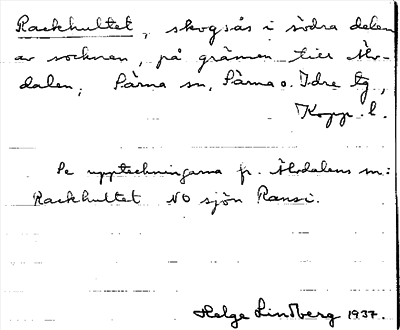 Rackhultet, skogsås i södra delen
av socknen, på gränsen till Älv-
dalen; Särna sn, Särna o. Idre tg,
Kopp. l.
Se uppteckningarna fr. Älvdalens sn:
Rackhultet NO sjön Ransi.
Helge Lindberg 1937.